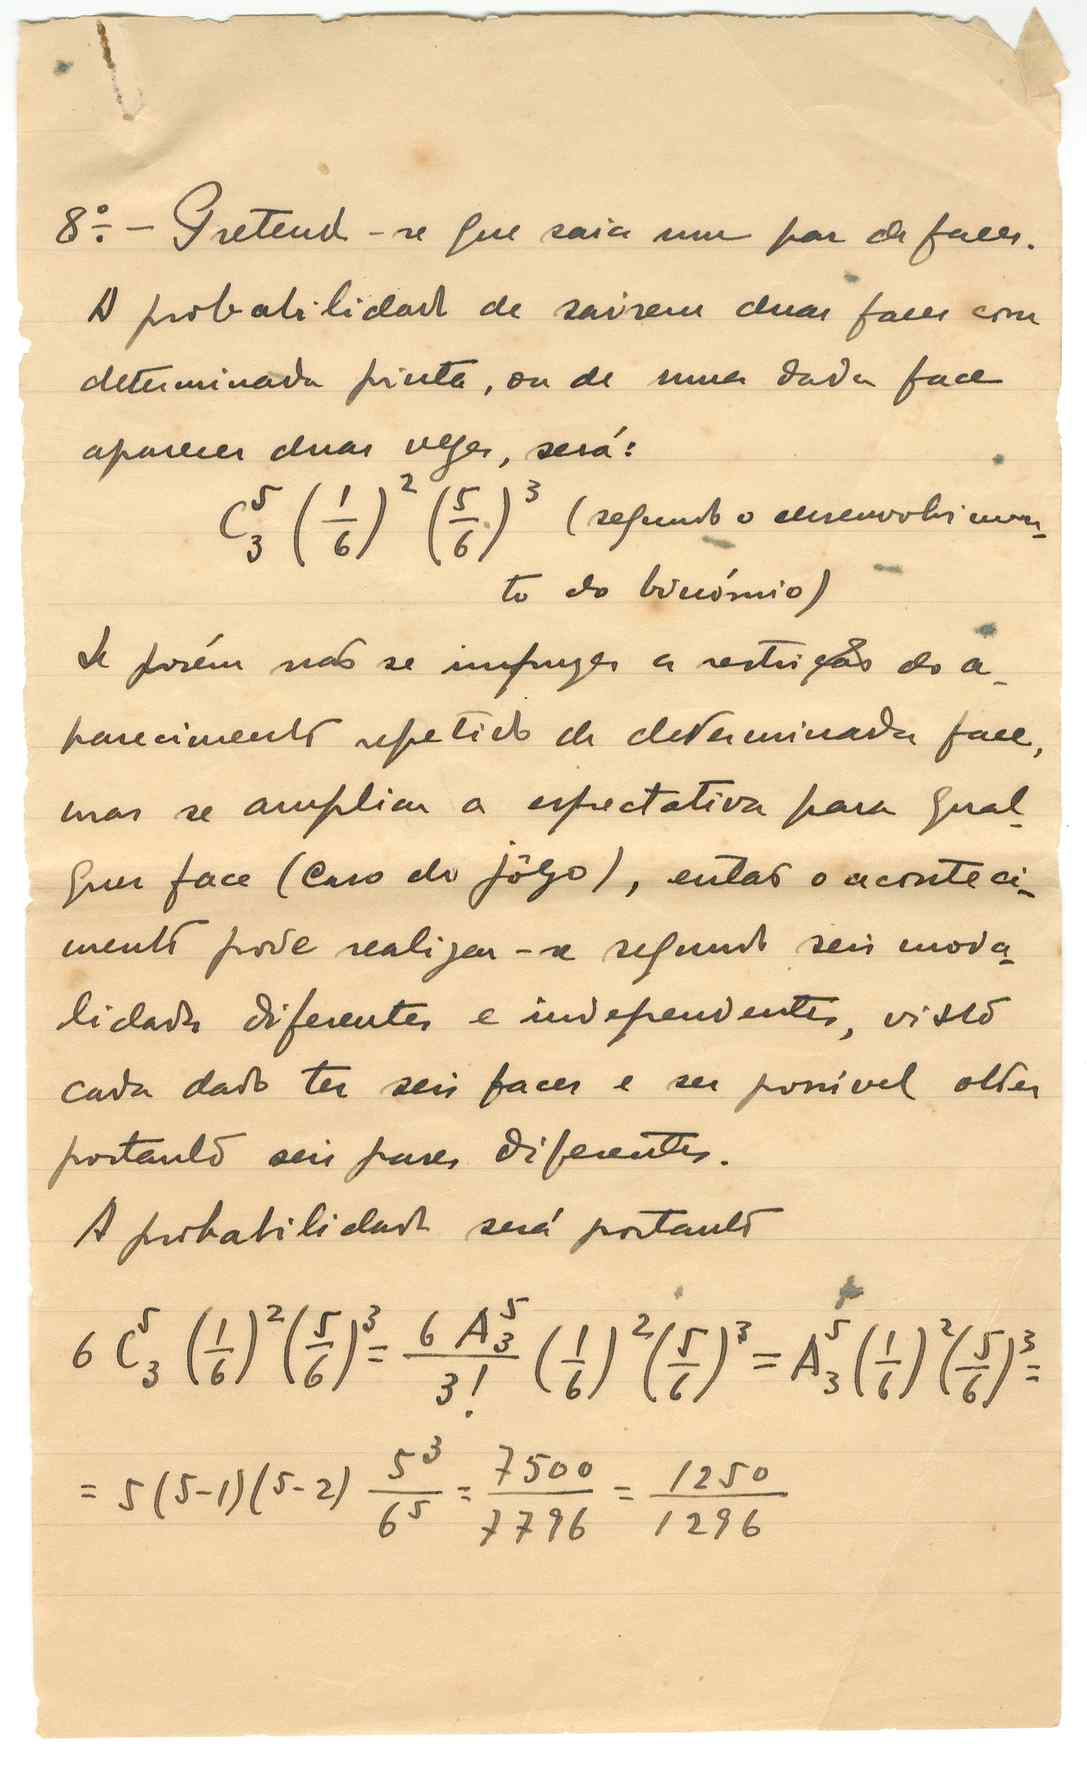 8º: - Pretende-se que saia um par de faces.
A probabilidade de sairem duas faces com
determinada pinta, ou de uma dada face
aparecer duas vezes, será:
C⁵₃ (1/6)² (5/6)³ (segundo o desenvolvimen-
to do binómio)
Se porém não se impuzer a restrição do a-
parecimento repetido de determinada face,
mas se ampliar a espectativa para qual-
quer face (caso do jôgo), então o aconteci-
mento pode realizar-se segundo seis moda-
lidades diferentes e independentes, visto
cada dado ter seis faces e ser possível obter
portanto seis pares diferentes.
A probabilidade será portanto
6 C⁵₃ (1/6)² (5/6)³ = 6 A⁵₃/3! (1/6)² (5/6)³ = A⁵₃ (1/6)² (5/6)³ =
= 5(5-1)(5-2) 5³/6⁵ = 7500/7796 = 1250/1296